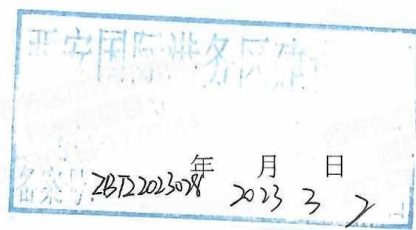 西安国际港务区
年 月 日
备案号:ZBTZ2023028 2023 3 2